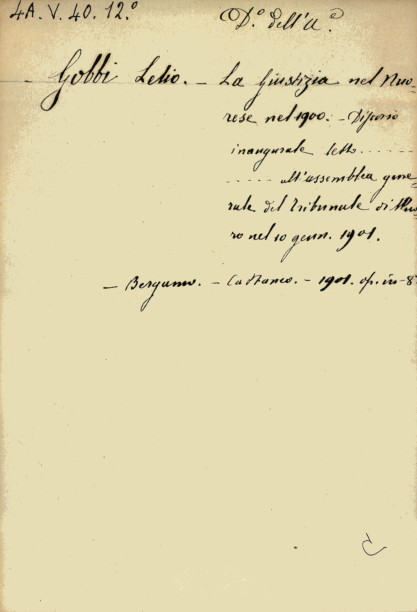 4A. V. 40. 12.°
D.° dell'A.°
Gobbi Lelio. — La Giustizia nel Nuo-
rese nel 1900. — Discorso
inaugurale letto . . . . . .
. . . . . all'assemblea gene-
rale del Tribunale di Nuo-
ro nel 10 genn. 1901.
— Bergamo. — Cattaneo. — 1901. op. in-8°